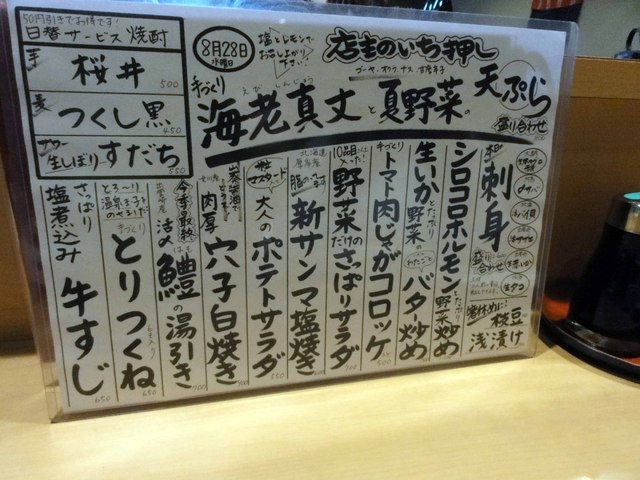 50円引きでお得です!
日替サービス焼酎
芋 桜井 500
麦 つくし黒 450
サワー 生しぼりすだち 550
8月28日
水曜日
塩とレモンで
お召し上がり
下さい!
店主のいち押し
ゴーヤ、オクラ、ナス
手づくり
海老真丈と夏野菜の
えびしんじょう
天ぷら
盛り合わせ
本日の
刺身
盛り合わせ
生タコ
箸休めに!
枝豆
浅漬け
シロコロホルモンとたっぷり野菜炒め
生いかとたっぷり野菜のバター炒め
わたごと
手づくり
トマト肉じゃがコロッケ
10品目以上入った!
野菜だけのさっぱりサラダ 700
北海道
厚岸産
新サンマ塩焼き
粒マスタード
大人のポテトサラダ 550
肉厚 穴子白焼き 700
今季最後
活〆鱧の湯引き 700
はも
とろ〜り
温泉玉子と
とりつくね 650
さっぱり
塩煮込み 牛すじ 650